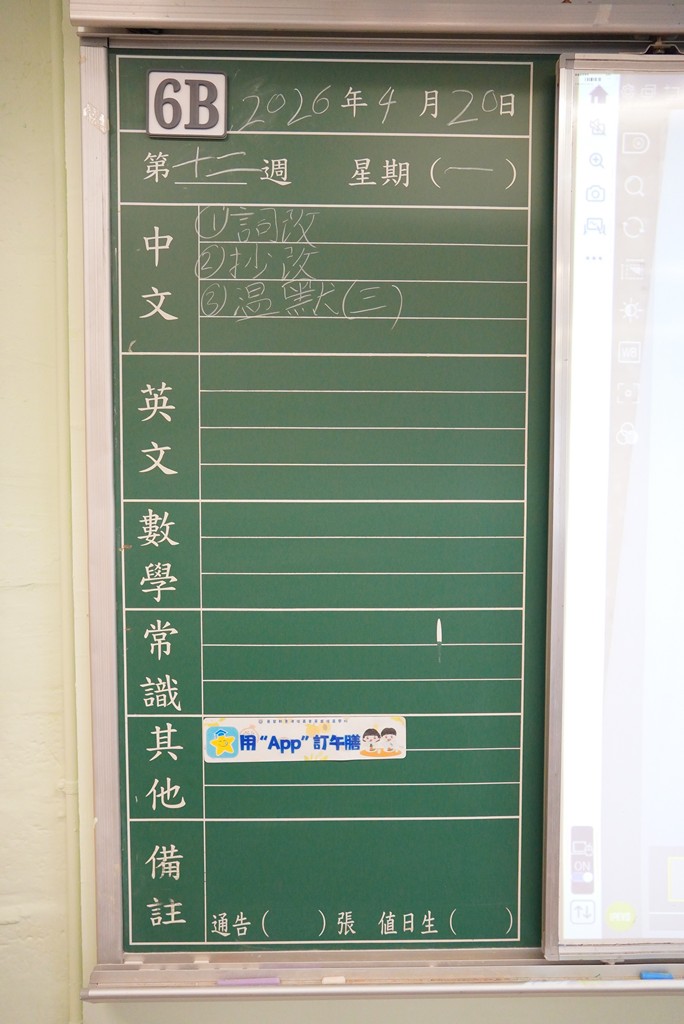 6B 2026年4月20日
第十二週 星期（一）
中文
①詞改
②抄改
③温默(三)
英文
數學
常識
其他
用“App”訂午膳
備註
通告（ ）張 值日生（ ）
ON